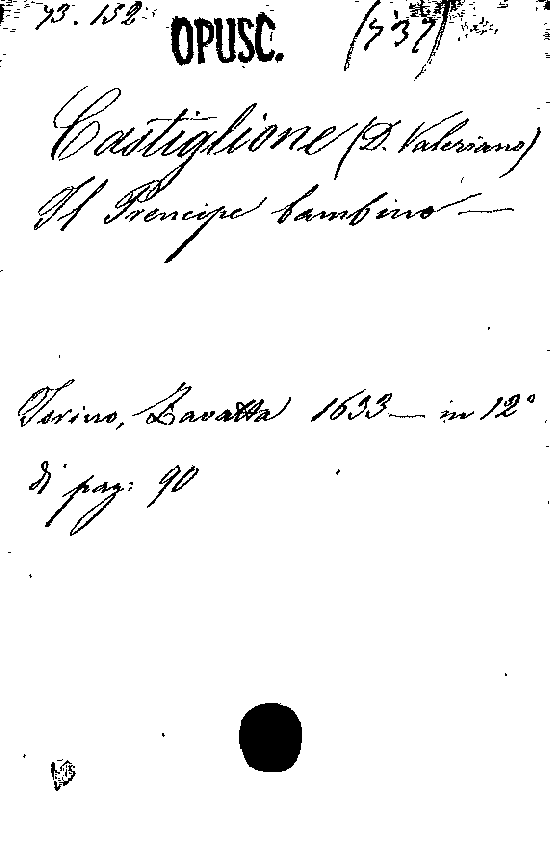 73. 152 OPUSC. (737)
Castiglione (D. Valeriano)
Il Prencipe bambino —
Torino, Zavatta 1633 — in 12°
di pag: 90